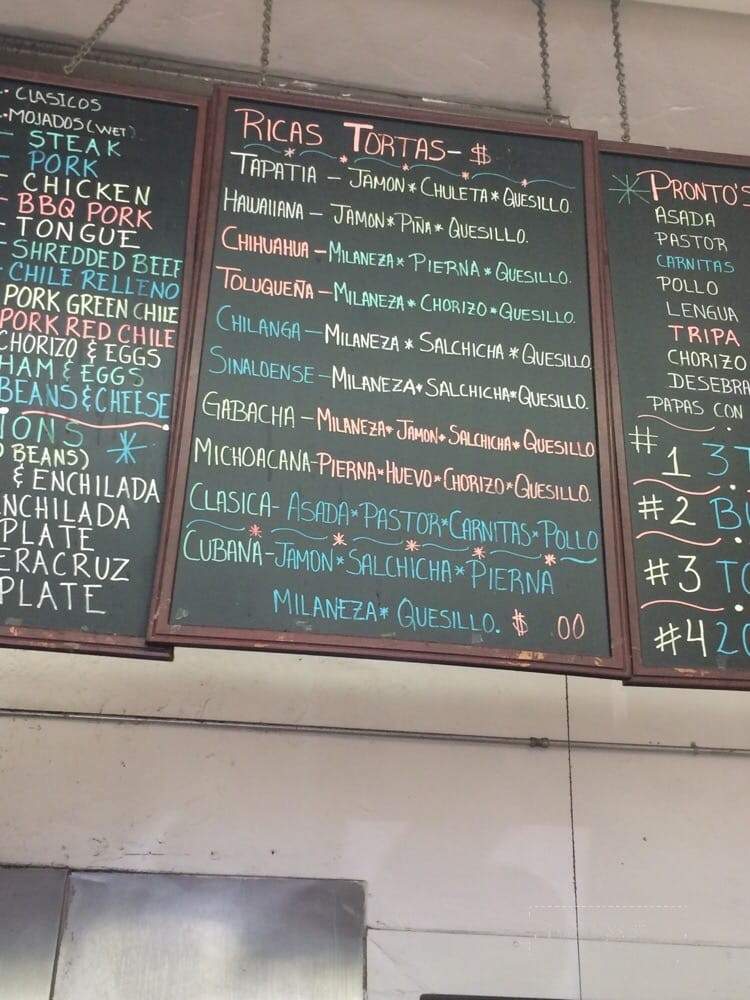 CLASICOS
MOJADOS (WET)
- STEAK
- PORK
- CHICKEN
- BBQ PORK
- TONGUE
- SHREDDED BEEF
- CHILE RELLENO
PORK GREEN CHILE
PORK RED CHILE
CHORIZO & EGGS
HAM & EGGS
BEANS & CHEESE
IONS
BEANS)
& ENCHILADA
NCHILADA
PLATE
ERACRUZ
PLATE
RICAS TORTAS- $
TAPATIA - JAMON*CHULETA*QUESILLO.
HAWAIIANA - JAMON*PIÑA*QUESILLO.
CHIHUAHUA - MILANEZA*PIERNA*QUESILLO.
TOLUQUEÑA - MILANEZA*CHORIZO*QUESILLO.
CHILANGA - MILANEZA*SALCHICHA*QUESILLO.
SINALOENSE - MILANEZA*SALCHICHA*QUESILLO.
GABACHA - MILANEZA*JAMON*SALCHICHA*QUESILLO
MICHOACANA-PIERNA*HUEVO*CHORIZO*QUESILLO.
CLASICA- ASADA*PASTOR*CARNITAS*POLLO
CUBANA-JAMON*SALCHICHA*PIERNA
MILANEZA* QUESILLO. $ 00
PRONTO'S
ASADA
PASTOR
CARNITAS
POLLO
LENGUA
TRIPA
CHORIZO
DESEBRA
PAPAS CON
#1 3T
#2 B
#3 TO
#4 20